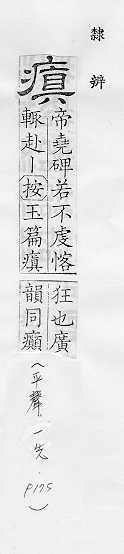 隸辨
瘨
帝堯碑若不虔恪
輙赴丨按玉篇瘨
狂也廣
韻同癲
(平聲.一先.
P175)